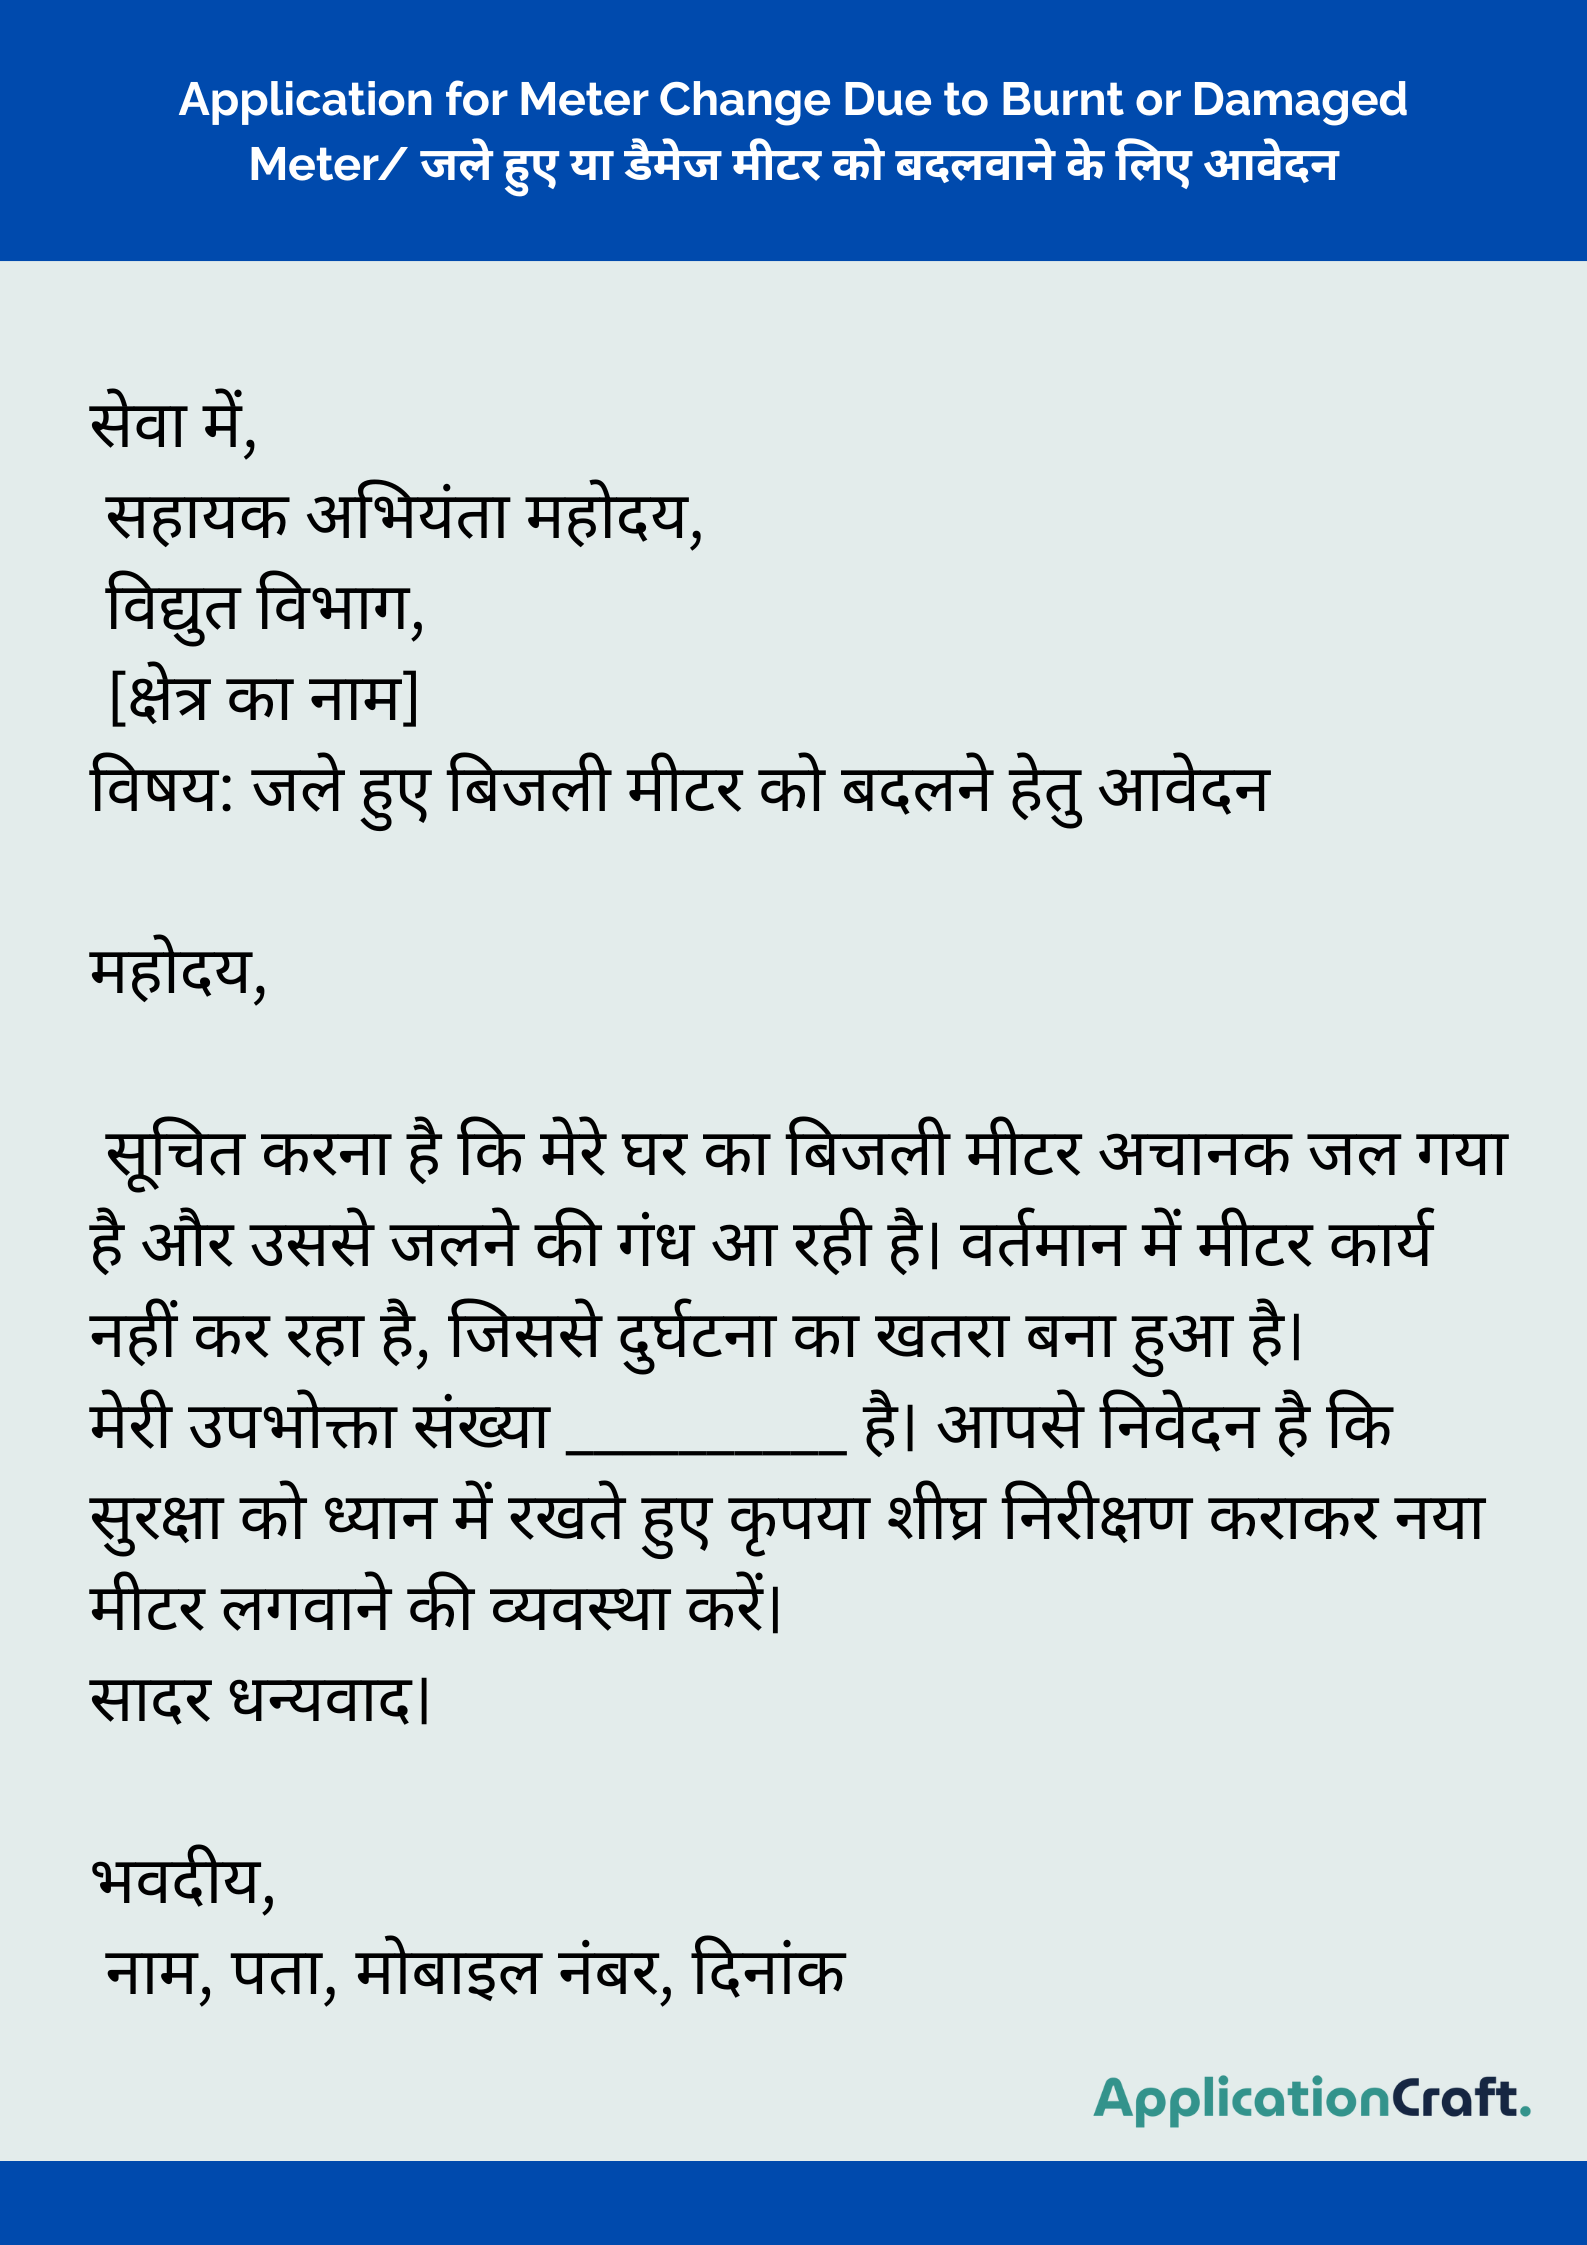 Application for Meter Change Due to Burnt or Damaged
Meter/ जले हुए या डैमेज मीटर को बदलवाने के लिए आवेदन
सेवा में,
सहायक अभियंता महोदय,
विद्युत विभाग,
[क्षेत्र का नाम]
विषय: जले हुए बिजली मीटर को बदलने हेतु आवेदन
महोदय,
सूचित करना है कि मेरे घर का बिजली मीटर अचानक जल गया
है और उससे जलने की गंध आ रही है। वर्तमान में मीटर कार्य
नहीं कर रहा है, जिससे दुर्घटना का खतरा बना हुआ है।
मेरी उपभोक्ता संख्या __________ है। आपसे निवेदन है कि
सुरक्षा को ध्यान में रखते हुए कृपया शीघ्र निरीक्षण कराकर नया
मीटर लगवाने की व्यवस्था करें।
सादर धन्यवाद।
भवदीय,
नाम, पता, मोबाइल नंबर, दिनांक
ApplicationCraft.